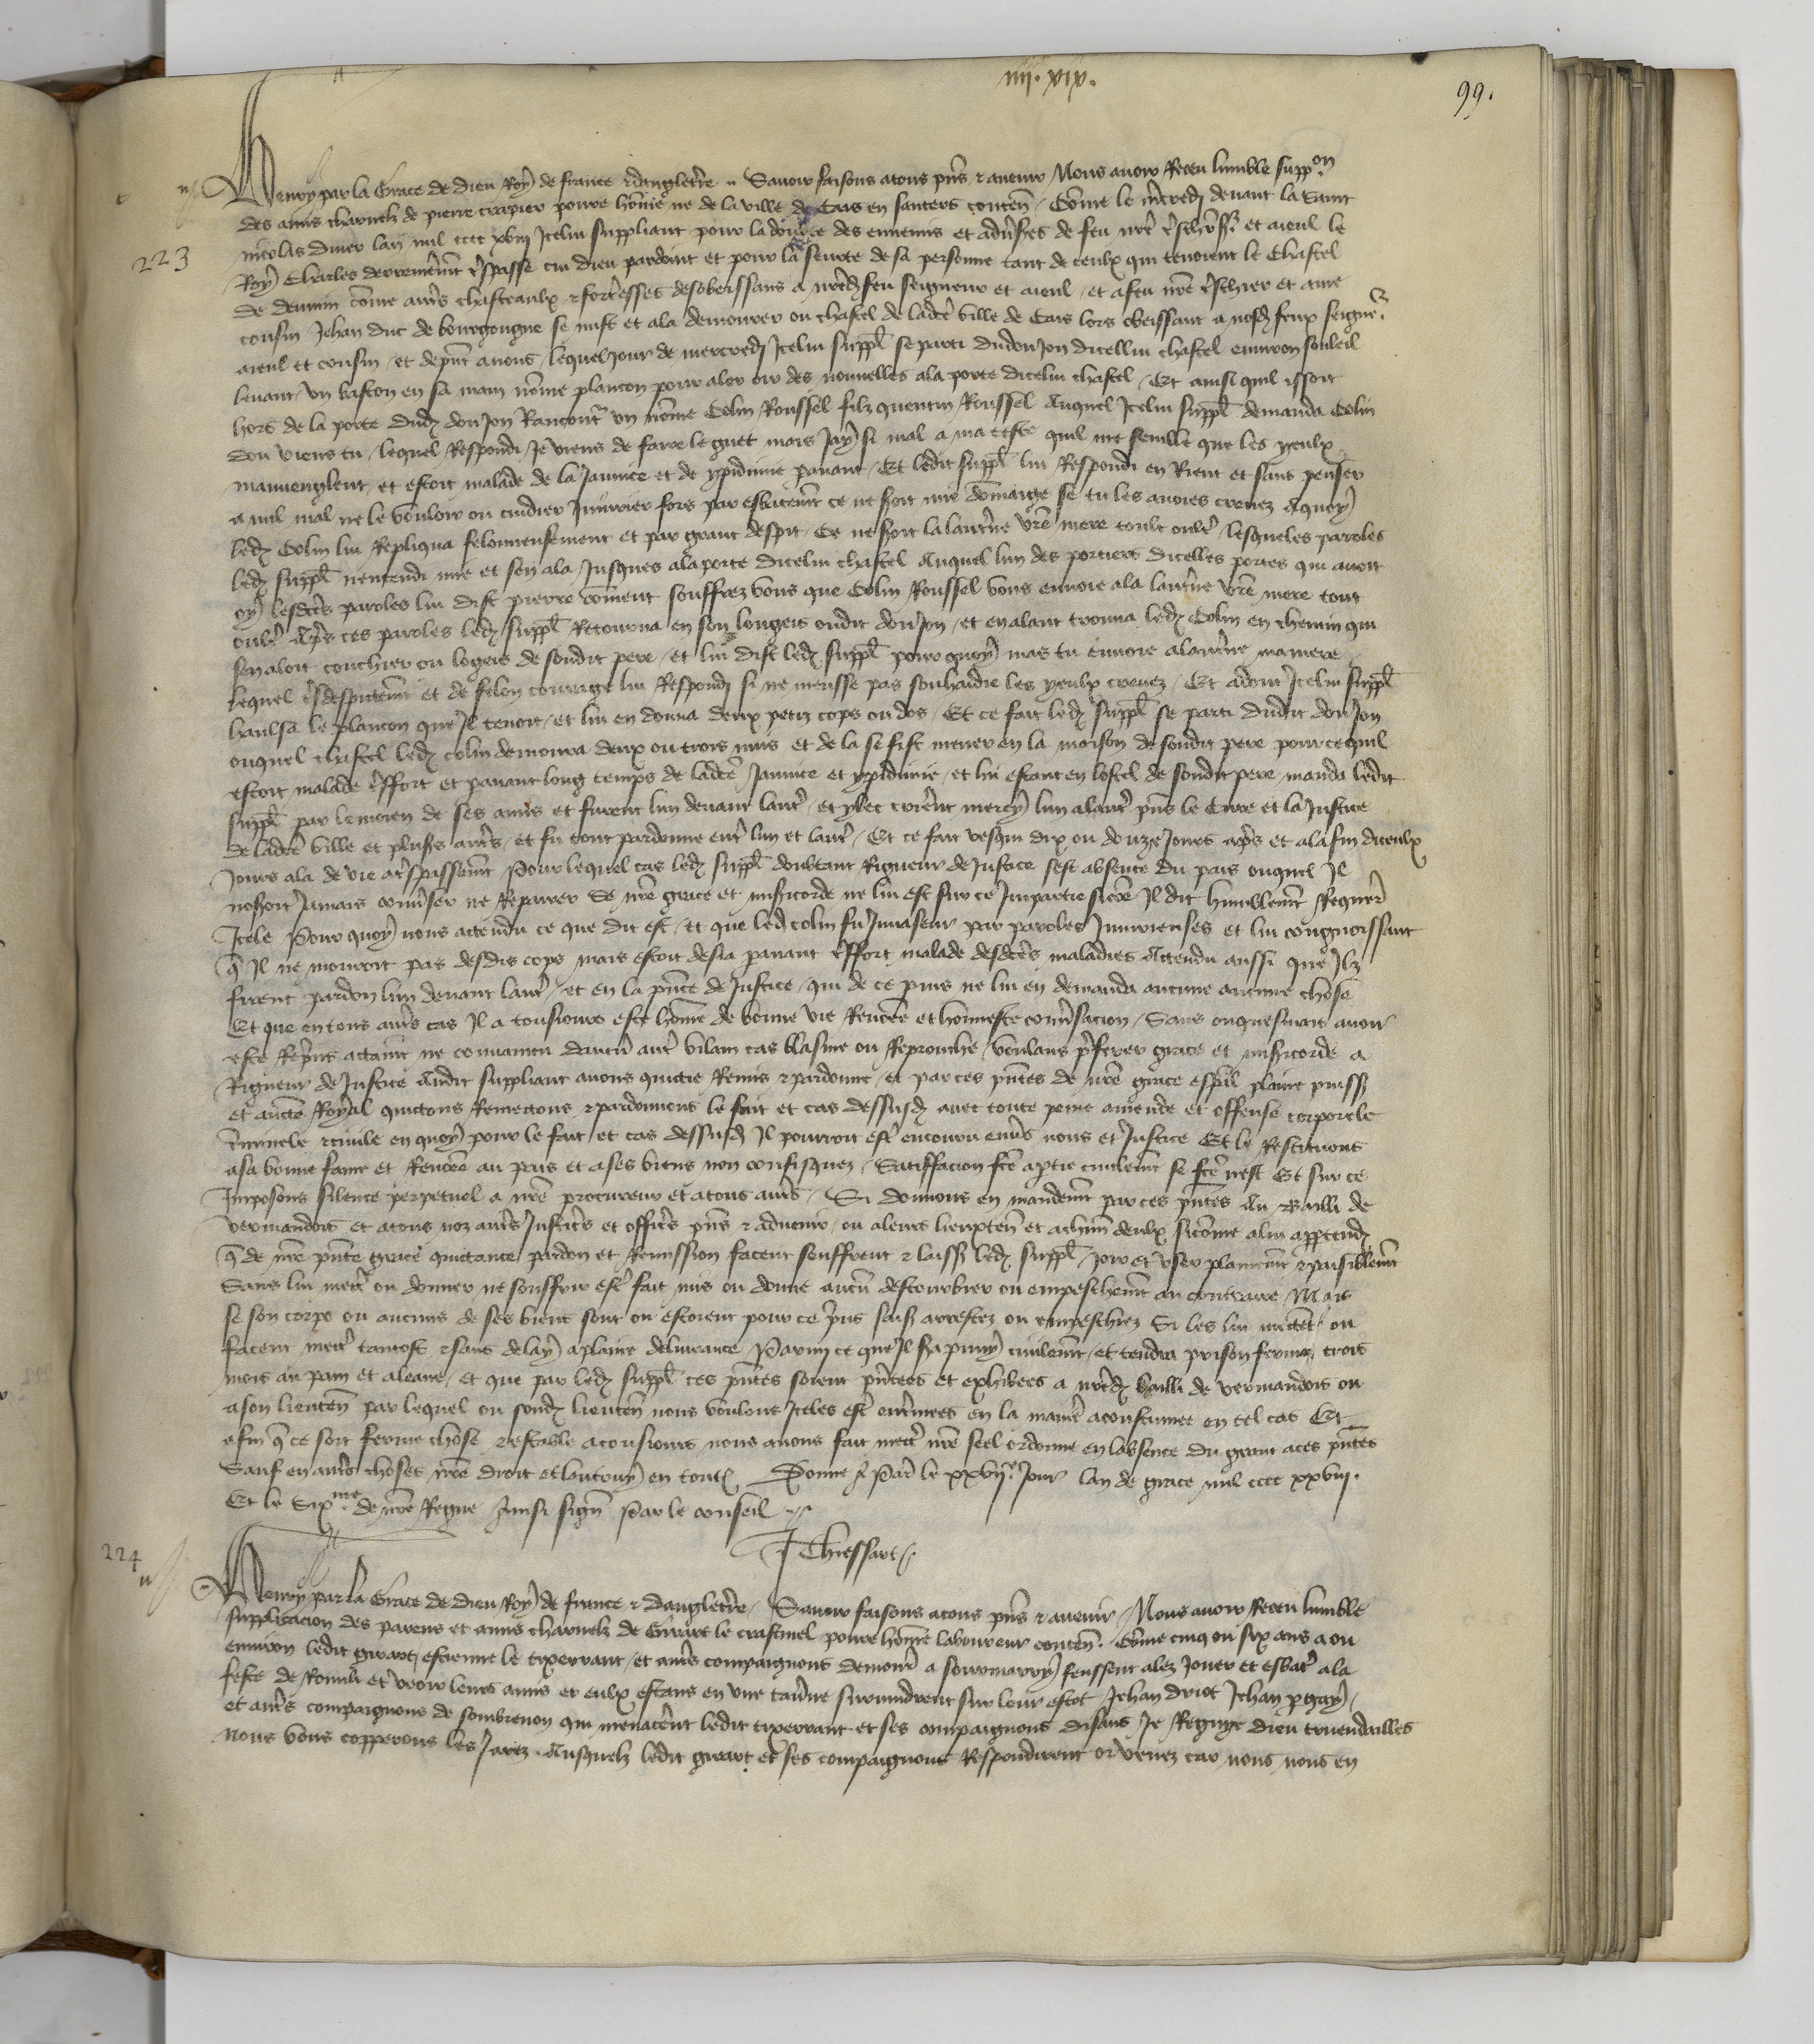 iiii. xix.
99.
Henry par la Grace de dieu Roy de france et dangletere Savoir faisons a tous pns et avenir Nous avoir Receu lumble suppon
des amis charnelz de pierre crapier povre homme ne de la ville de Cais en santers conten Comme le mcredj devant la saint
223
nicolas diver lan mil cccc xviij Icelui suppliant pour la doubte des ennemis et adverses de feu nre et aieul le
Roy Charles derrenierement cui dieu pardoint et pour la seurte de sa personne tant de ceulx qui tenoient le Chastel
de demuin comme aultres chasteaulx et forteresses desobeissans a nredj feu seigneur et aieul et a feu nre treschier et ame
cousin Jehan duc de bourgongne se mist et ala demourer ou chastel de ladce ville de Cais lors obeissant a nosdj feux seigne
aieul et cousin et depnt a nous lequel jour de mercredj Icelui suppl se parti du donjon dicellui chastel environ souleil
levant un baston en sa main nomme plancon pour aler oir des nouvelles a la porte dicelui chastel Et ainsi quil issoit
hors de la porte dudj donjon Rancontra un nomme Colin Roussel filz quentin Roussel Auquel Icelui suppl demanda Colin
dou viens tu lequel Respondi Je viens de faire le guet mais Jay si mal a ma teste quil me semble que les yeulx
mavuenglent et estoit malade de la Jaunice et de ypidimie Et ledit suppl lui Respondi en Riant et sans penser
a nul mal ne le vouloir ou cuidier Injurier fors par esbatemt ce ne soit mie dommaige se tu les avoies crevez Aquoy
ledj Colin lui Repliqua felonneusement et par grant despit Ce ne soit la lanterne vre mere tout oultre lesqueles paroles
ledj suppl nentendi mie et sen ala Jusques a la porte dicelui chastel Auquel lun des portiers dicelles portes qui avoit
oy lesdces paroles lui dist pierre comment souffrez vous que Colin Roussel vous envoie a la lanterne vre mere tout
oultre Apres ces paroles ledj suppl Retourna en son longeis oudit donjon et en alant trouva ledj Colin en chemin qui
sen aloit couchier ou logeis de sondit pere et lui dist ledj suppl pour quoy mas tu envoie a lanterne ma mere
lequel tresdespitemt et de felon courage lui Respondj si ne meusse pas souhaidie les yeulx crevez Et adont Icelui suppl
haulsa le plancon que Il tenoit et lui en donna deux petiz cops ou dos Et ce fait ledj suppl se parti dudit donjon
ouquel chastel ledj colin demoura deux ou trois nuis et de la se fist mener en la maison de sondit pere pour ce quil
estoit malade tresfort et paravant long temps de ladce Jaunice et ypidimie et lui estant en lostel de sondit pere manda ledit
suppl par le moien de ses amis et furent lun devant lautre et ylec crierent mercy lun a lautre pns le Cure et la Justice
de ladce ville et pluss autres et fu tout pardonne entre lun et lautre Et ce fait vesqui dix ou douze Jours apres et a la fin diceulx
Jours ala de vie a trespassement Pour lequel cas ledj suppl doubtant Rigueur de Justice sest absente du pais ouquel Il
noseroit Jamais converser ne Repairer Se nre grace et misericorde ne lui est sur ce Impartie sicome Il dit humblemt Requerir
Icele Pour quoy nous attendu ce que dit est et que ledj colin fu Invaseur par paroles Injurieuses et lui congnoissant
que Il ne mouroit pas desdis cops mais estoit desia paravant tresfort malade desdces maladies Attendu aussi que Ilz
firent pardon lun devant lautre et en la pnce de Justice qui de ce puis ne lui en demanda aucune aucune chose
Et que en tous autres cas Il a tousiours este homme de bonne vie Renomee et honneste conversacion Sans onquesmais avoir
este Reprins attaint ne convaincu daucun autre vilain cas blasme ou Reprouche voulans preferer grace et misericorde a
Rigueur de Justice Audit suppliant avons quictie Remis et pardonne et par ces pntes de nre grace espal plaine puiss
et aucte Royal quictons Remectons et pardonnons le fait et cas dessusdj avec toute peine amende et offense corporele
criminele et civile en quoy pour le fait et cas dessusdj Il pourroit estre encouru envers nous et Justice Et le Restituons
a sa bonne fame et Renomee au pais et a ses biens non confisquez Satiffacion fce a ptie civilemt se fce nest Et sur ce
Imposons silence perpetuel a nre procureur et a tous autres Si donnons en mandemt par ces pntes Au Bailli de
Vermandois et a tous noz autres Justiciers et officiers pns et advenir ou a leurs lieuxten et a chun deulx sicomme a lui apptendj
que de nre pnte grace quictance pardon et Remission facent seuffrent et laiss ledj suppl Joir et user plainemt et paisiblemt
Sans lui mectre ou donner ne souffrir estre fait mis ou donne aucun destourbier ou empeschemt au contraire Mais
se son corps ou aucuns de ses biens sont ou estoient pour ce prins saisiz arrestez ou empeschiez Si les lui mectent ou
facent mectre tantost et sans delay a plaine delivrance Parmy ce que Il sera puny civilemt et tendra prison fermee trois
mois au pain et a leaue et que par ledj suppl ces pntes soient pntees et exhibees a nredj bailli de vermandois ou
a son lieuten par lequel ou sondj lieuten nous voulons Iceles estre enterinees en la maniere acoustumee en tel cas Et
afin que ce soit ferme chose et estable a tousiours nous avons fait mectre nre seel ordonne en labsence du grant a ces pntes
Sauf en autres choses nre droit et lautruy en toutes Donne a Paris le xxvije Jour lan de grace mil cccc xxviij.
Et le Sixme de nre Regne Ainsi signe Par le conseil
J Thiessart
224
Henry par la Grace de dieu Roy de france et dangletere Savoir faisons a tous pns et avenir Nous avoir Receu lumble
supplicacion des parens et amis charnelz de Girart le crastinel povre homme laboureur conten. Comme cinq ou six ans a ou
environ ledit girart estienne le tixerrant et autres compaignons demour a sormarry feussent alez Jouer et esbatre a la
feste de Romili et veoir leurs amis et eulx estans en une taverne survindrent sur leur escot Jehan driot Jehan
et autres compaignons de sombrenon qui menacerent ledit tixerrant et ses compaignons disans Je Regnye dieu truendailles
nous vous copperons les Jarez. Ausquelz ledit girart et ses compaignons Respondirent or venez car nous nous en